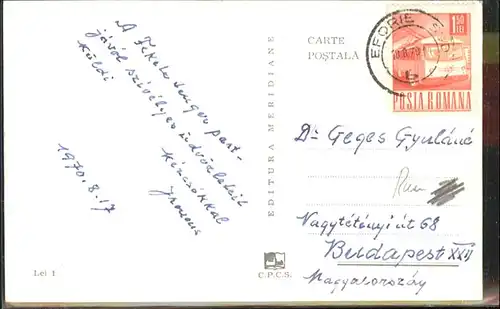 A Fekete tenger part-
járól szívélyes üdvözletét
küldi
kézcsókkal
1970. 8. 17
Lei 1
EDITURA MERIDIANE
C.P.C.S.
CARTE
POȘTALĂ
EFORIE
1,50
LEI
POSTA ROMANA
Dr Geges Gyuláné
Nagytétényi út 68
Budapest XXII
Magyarország